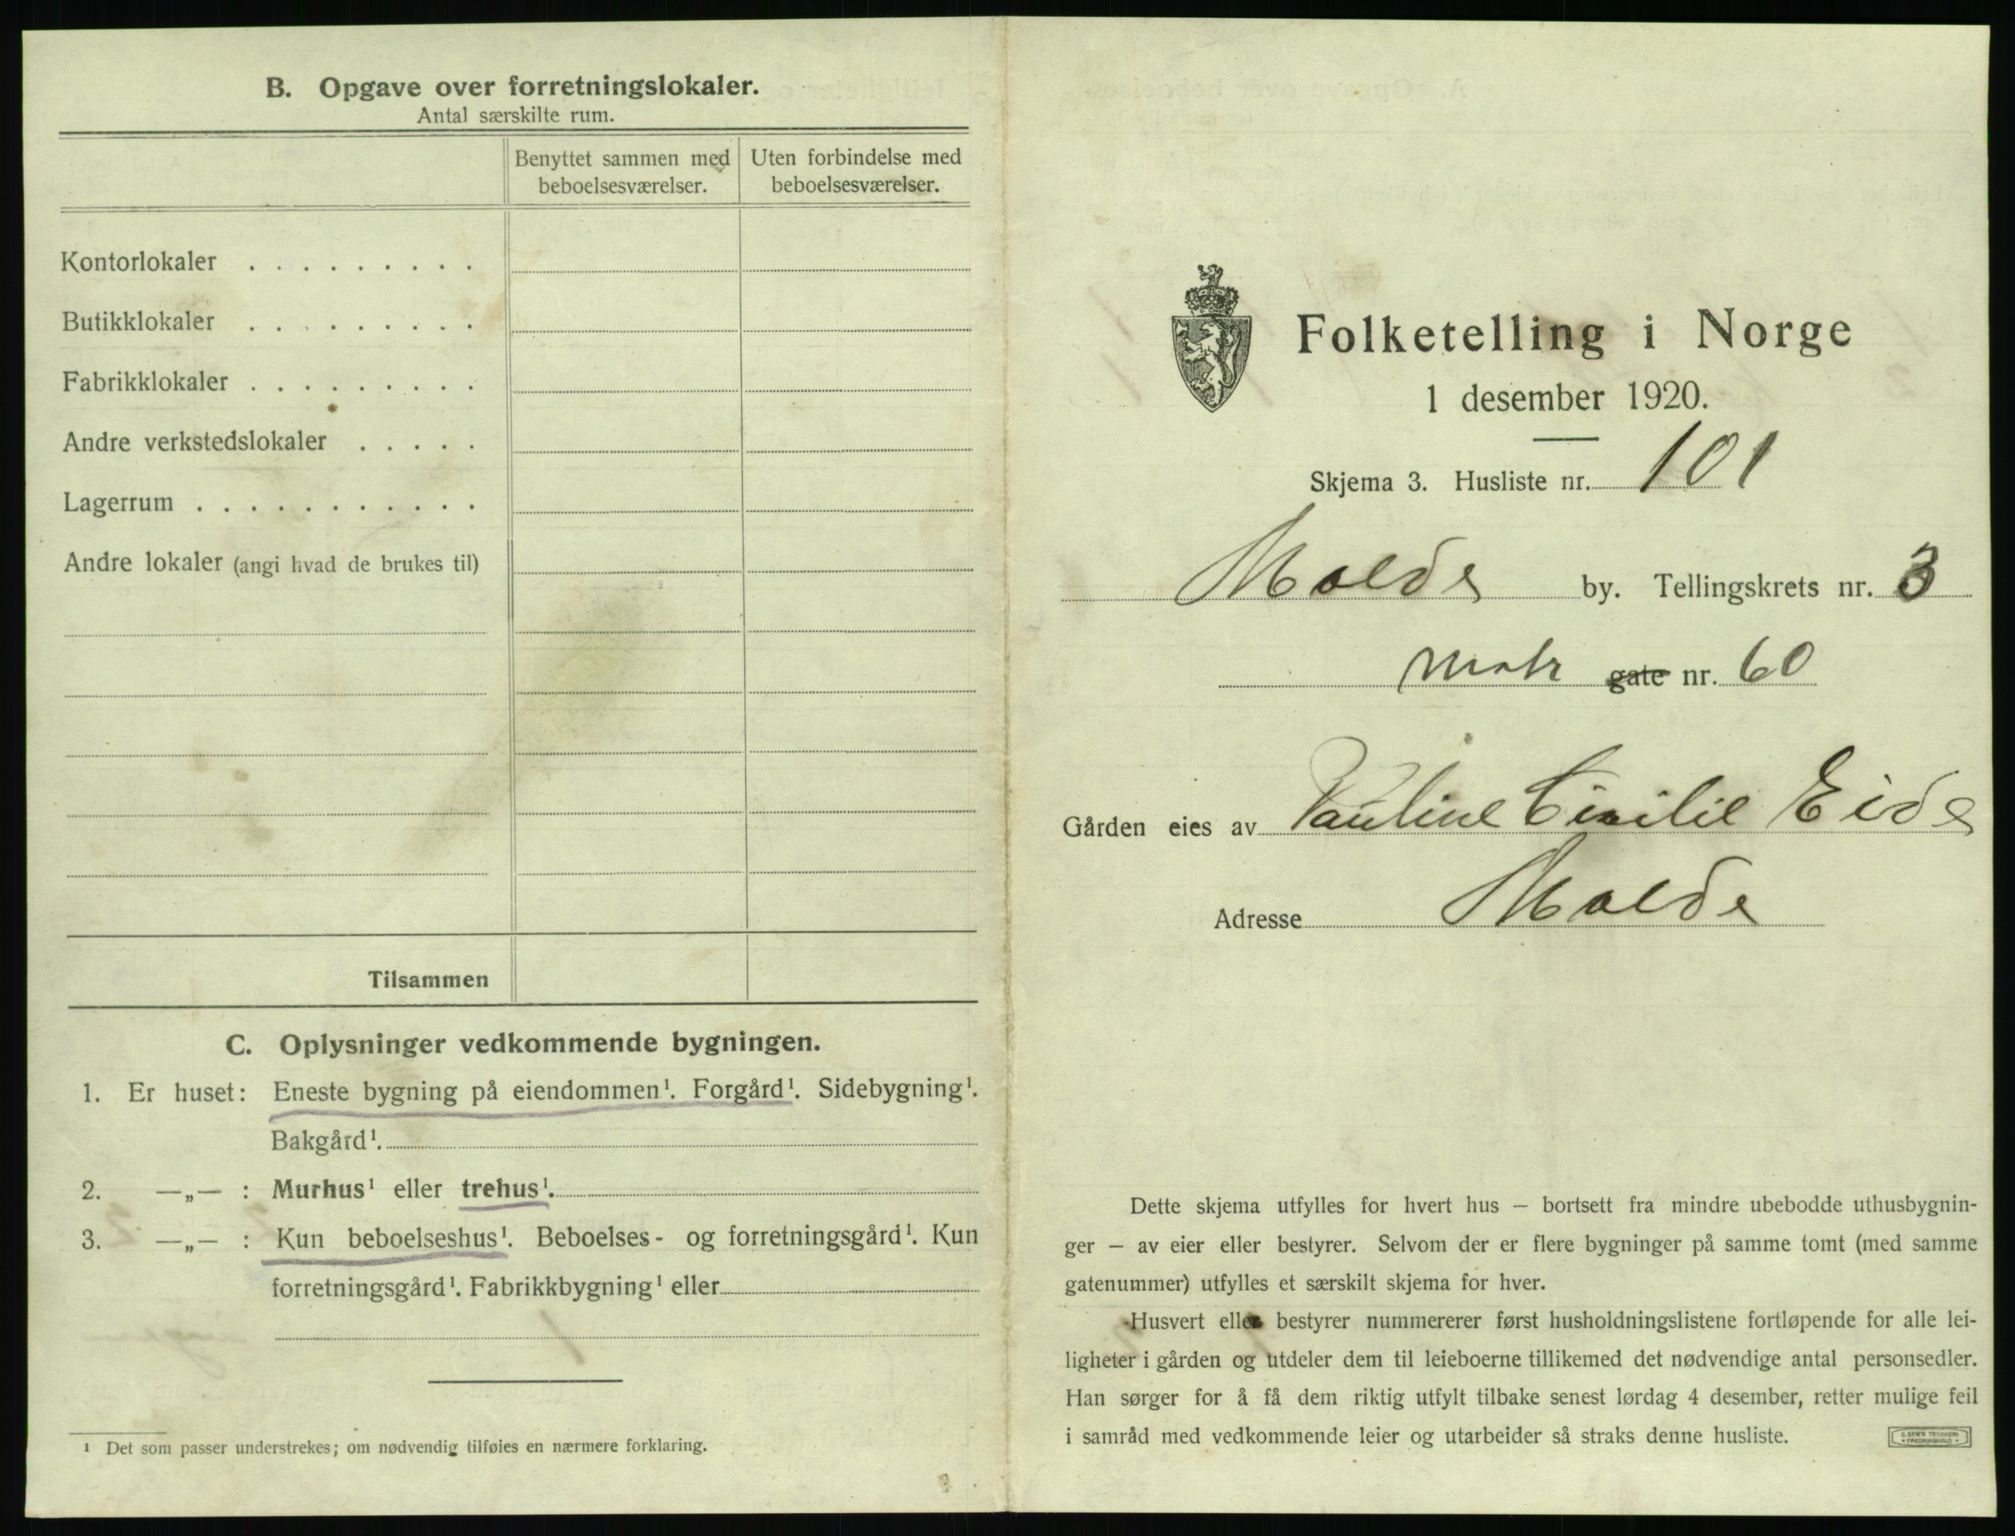 B. Opgave over forretningslokaler.
Antal særskilte rum.
Benyttet sammen med beboelsesværelser.
Uten forbindelse med beboelsesværelser.
Kontorlokaler . . . . . . . . .
Butikklokaler . . . . . . . . .
Fabrikklokaler . . . . . . . . .
Andre verkstedslokaler . . . . .
Lagerrum . . . . . . . . . . .
Andre lokaler (angi hvad de brukes til)
Tilsammen
C. Oplysninger vedkommende bygningen.
1. Er huset: Eneste bygning på eiendommen¹. Forgård¹. Sidebygning¹.
Bakgård¹.
2. —„— : Murhus¹ eller trehus¹.
3. —„— : Kun beboelseshus¹. Beboelses- og forretningsgård¹. Kun
forretningsgård¹. Fabrikkbygning¹ eller
¹ Det som passer understrekes; om nødvendig tilføies en nærmere forklaring.
Folketelling i Norge
1 desember 1920.
Skjema 3. Husliste nr. 101
Molde by. Tellingskrets nr. 3
matr gate nr. 60
Gården eies av Pauline Cicilie Eide
Adresse Molde
Dette skjema utfylles for hvert hus — bortsett fra mindre ubebodde uthusbygnin-
ger — av eier eller bestyrer. Selvom der er flere bygninger på samme tomt (med samme
gatenummer) utfylles et særskilt skjema for hver.
Husvert eller bestyrer nummererer først husholdningslistene fortløpende for alle lei-
ligheter i gården og utdeler dem til leieboerne tillikemed det nødvendige antal personsedler.
Han sørger for å få dem riktig utfylt tilbake senest lørdag 4 desember, retter mulige feil
i samråd med vedkommende leier og utarbeider så straks denne husliste.